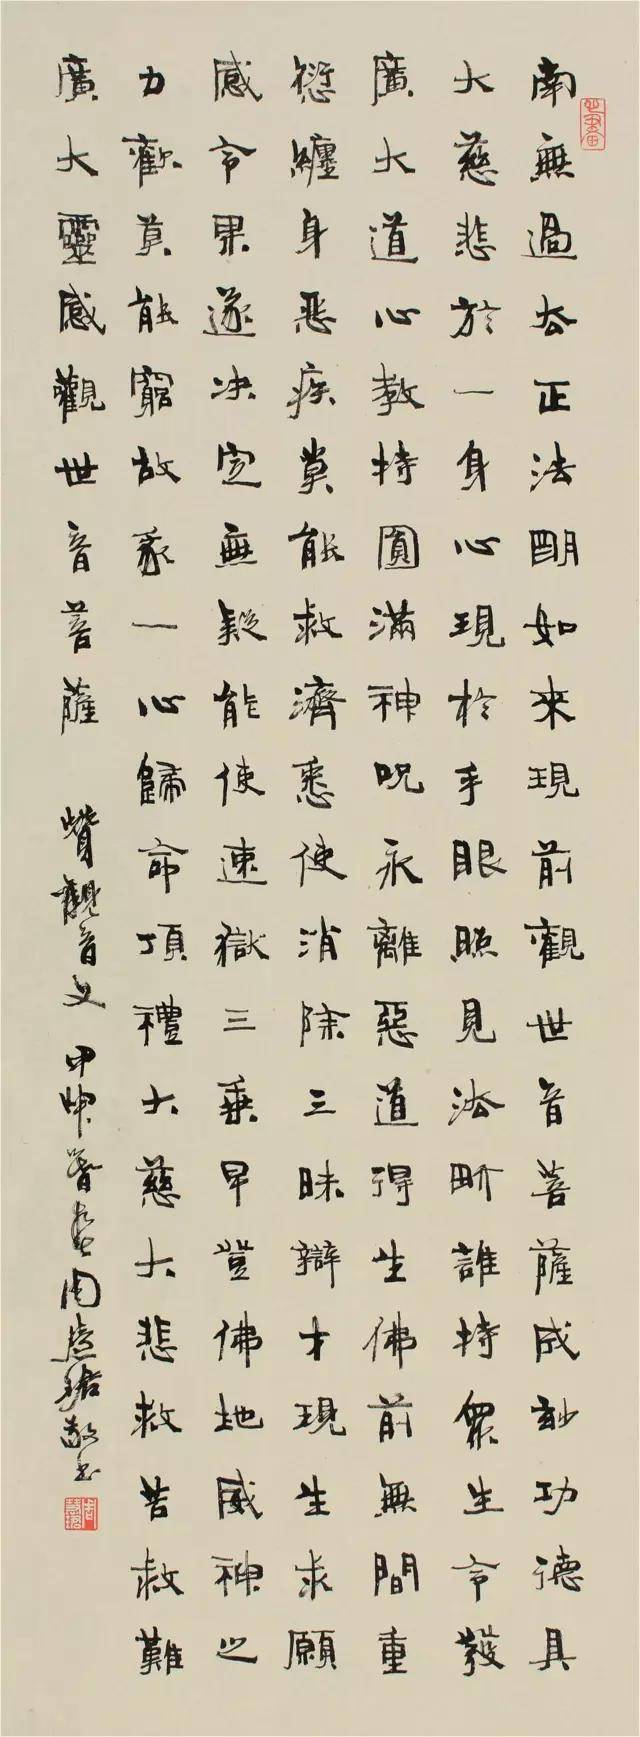 南無過去正法朙如來現前觀世音菩薩成妙功德具
大慈悲於一身心現於手眼照見法界護持眾生令發
廣大道心教持圓滿神咒永離惡道得生佛前無間重
愆纏身惡疾莫能救濟悉使消除三昧辯才現生求願
感令果遂决定無疑能使速獄三乘早登佛地威神之
力歎莫能窮故我一心歸命頂禮大慈大悲救苦救難
廣大靈感觀世音菩薩 贊觀音文 甲申暮春周慧珺敬書
周慧珺